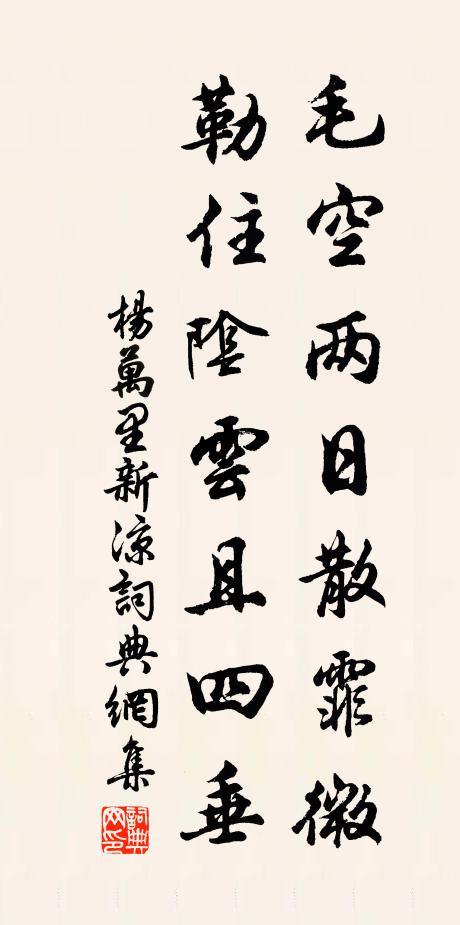 毛空两日散霏微
勒住陰雲且四垂
楊萬里新涼詞典網集
詞典網印